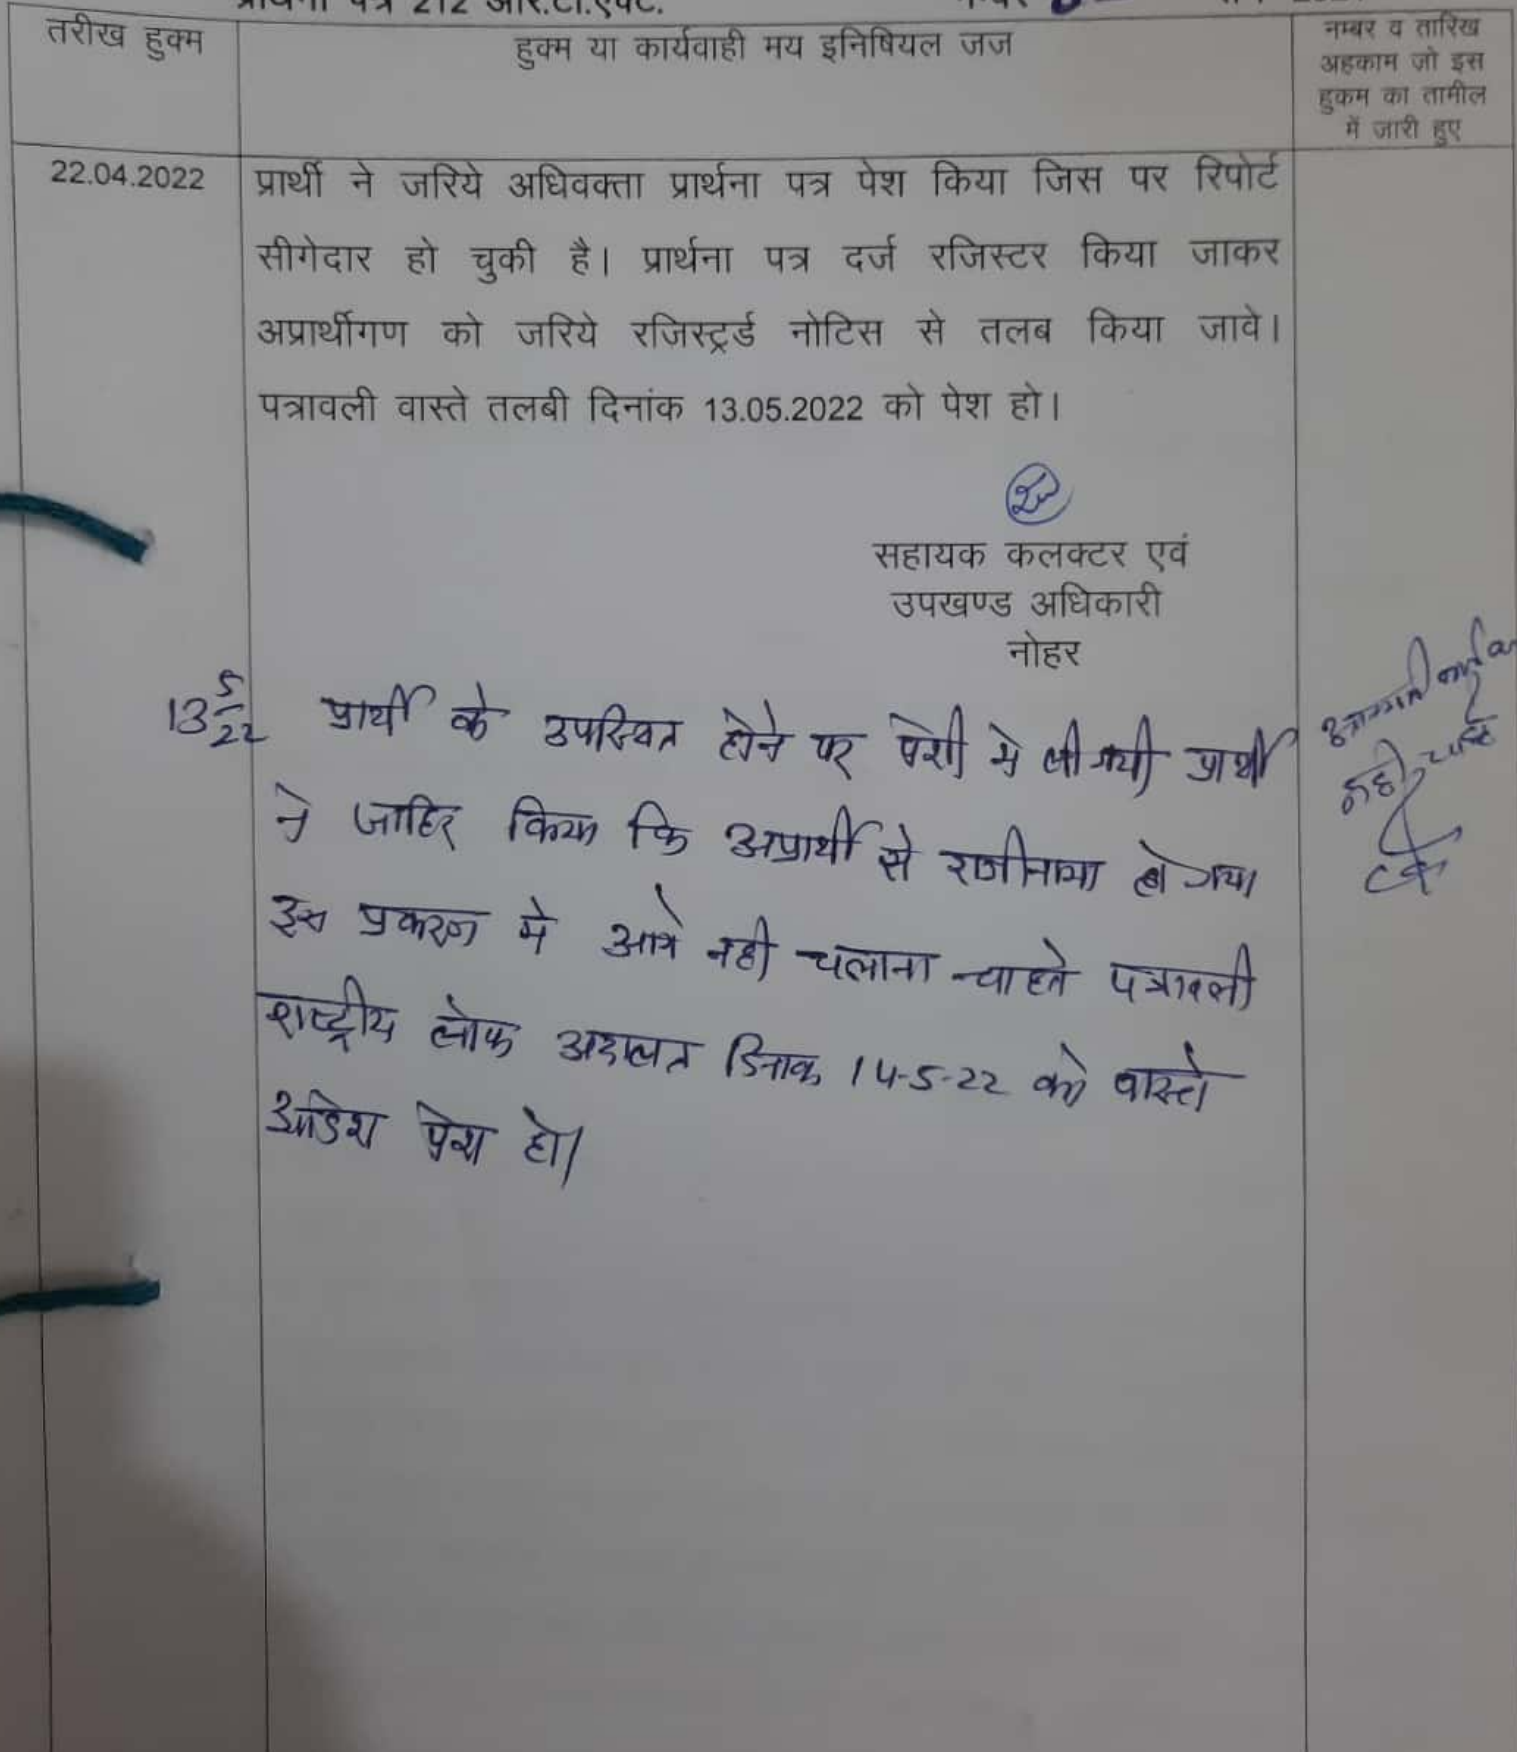 प्रार्थना पत्र 212 आर.टी.एक्ट.
तरीख हुक्म
हुक्म या कार्यवाही मय इनिषियल जज
नम्बर व तारिख
अहकाम जो इस
हुकम का तामील
में जारी हुए
22.04.2022
प्रार्थी ने जरिये अधिवक्ता प्रार्थना पत्र पेश किया जिस पर रिपोर्ट
सीगेदार हो चुकी है। प्रार्थना पत्र दर्ज रजिस्टर किया जाकर
अप्रार्थीगण को जरिये रजिस्ट्रर्ड नोटिस से तलब किया जावे।
पत्रावली वास्ते तलबी दिनांक 13.05.2022 को पेश हो।
सहायक कलक्टर एवं
उपखण्ड अधिकारी
नोहर
13 5/22 प्रार्थी के उपस्थित होने पर पेशी में ली गयी प्रार्थी
ने जाहिर किया कि अप्रार्थी से राजीनामा हो गया
इस प्रकरण में आगे नही चलाना चाहते पत्रावली
राष्ट्रीय लोक अदालत दिनांक 14-5-22 को वास्ते
आदेश पेश हो।